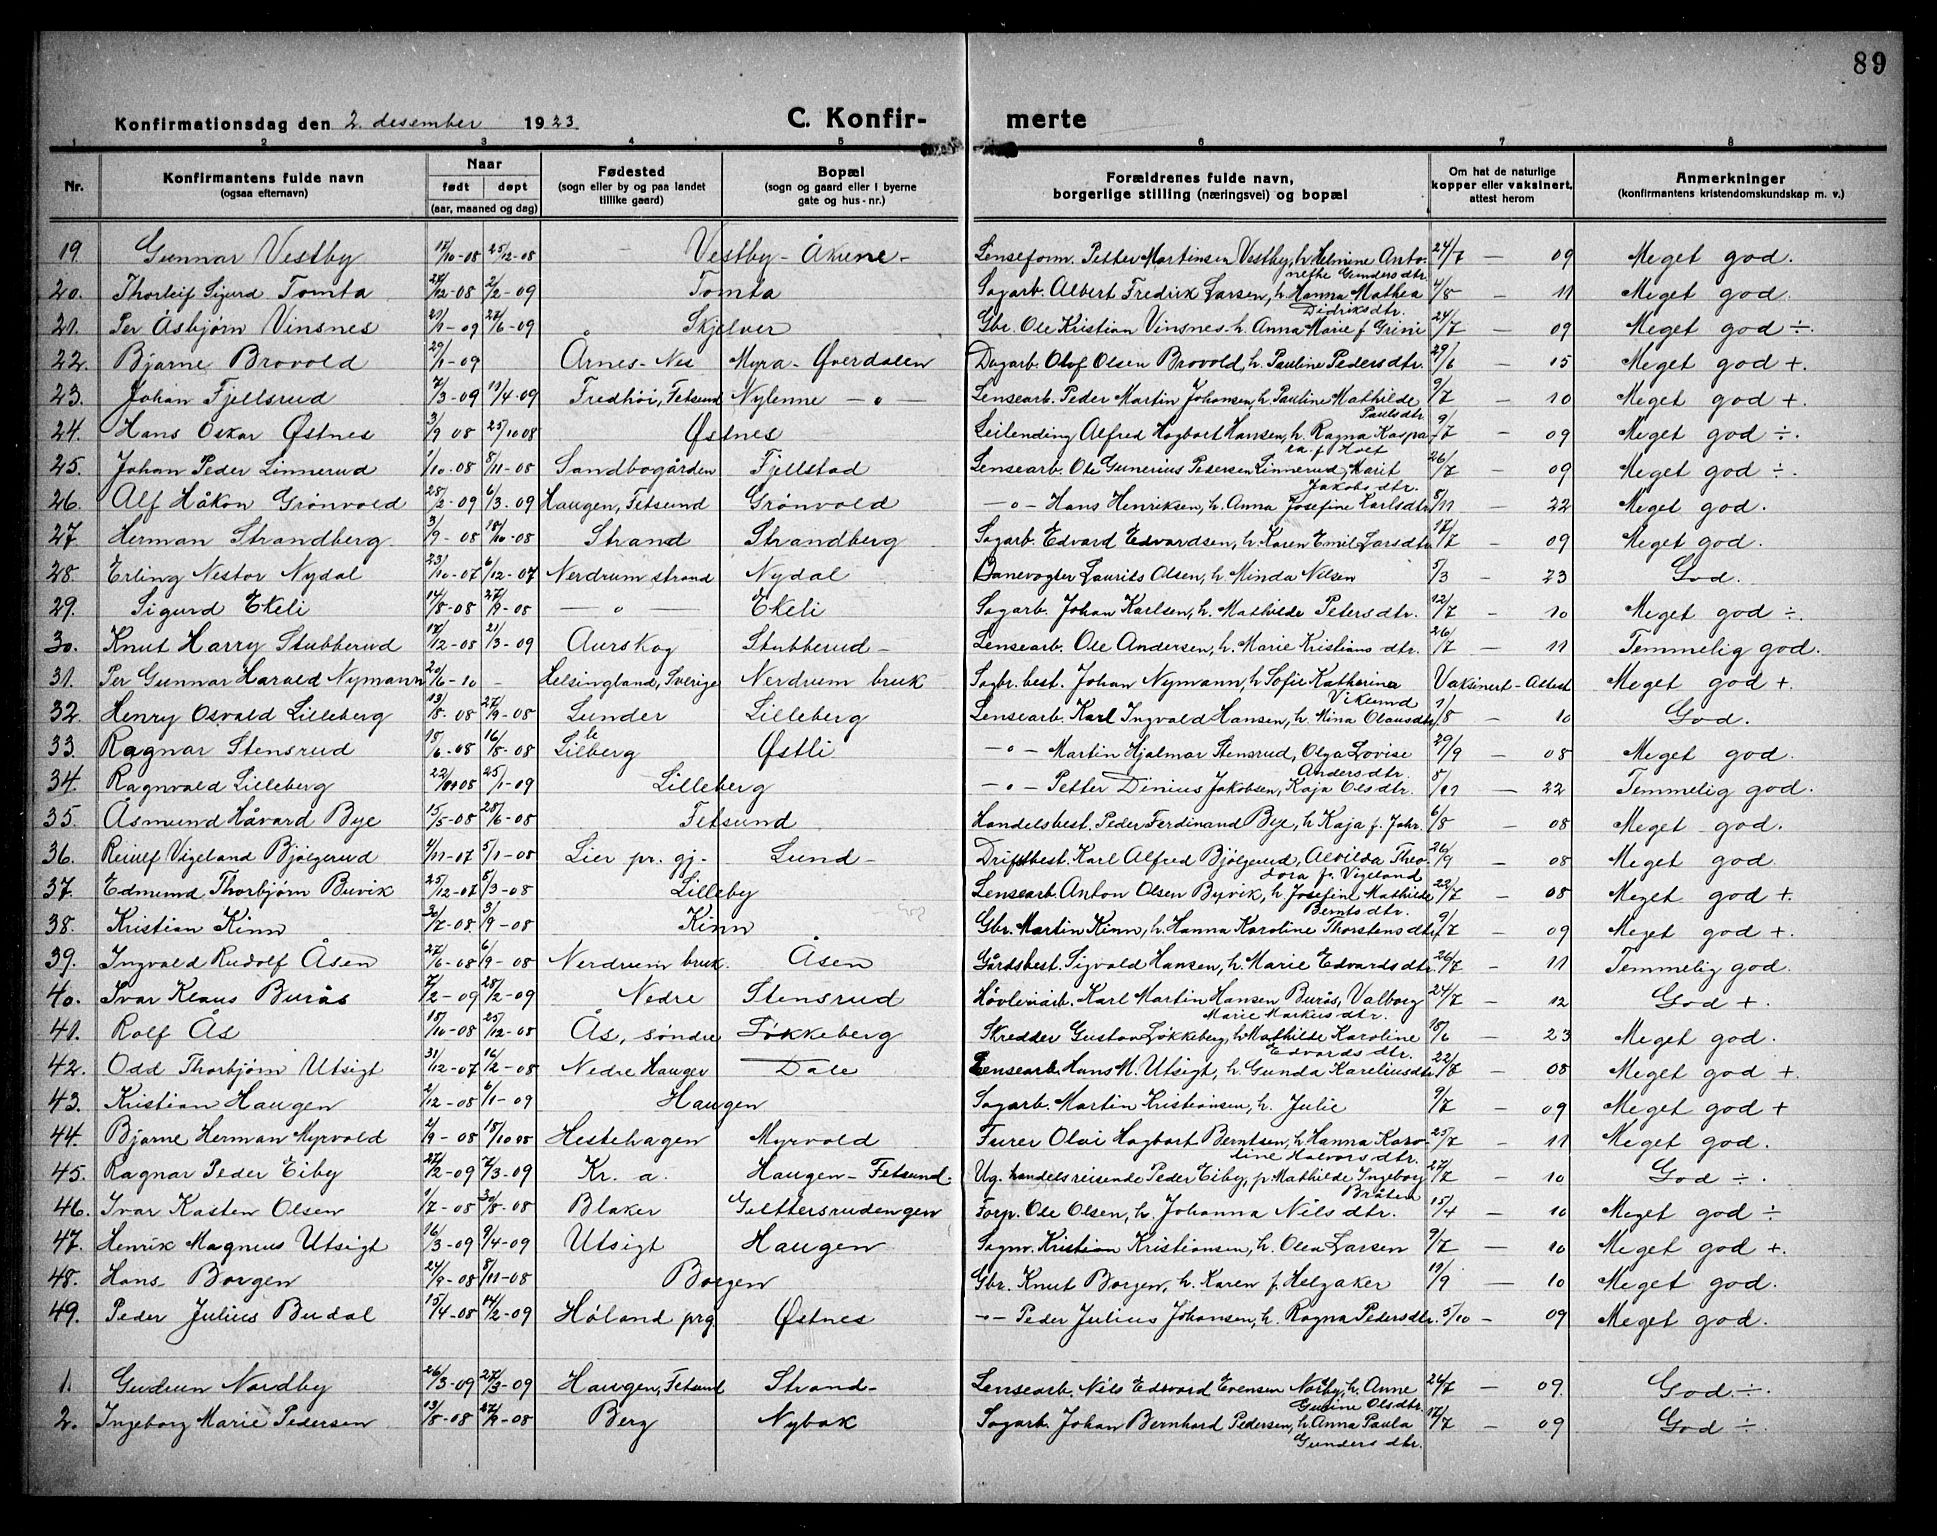 89
Konfirmationsdag den 2. desember 1923 C. Konfir- merte
1 2 3 4 5 6 7 8
Nr. Konfirmantens fulde navn (ogsaa efternavn) Naar født døpt (aar, maaned og dag) Fødested (sogn eller by og paa landet tillike gaard) Bopæl (sogn og gaard eller i byerne gate og hus-nr.) Forældrenes fulde navn, borgerlige stilling (næringsvei) og bopæl Om hat de naturlige kopper eller vaksinert, attest herom Anmerkninger (konfirmantens kristendomskundskap m. v.)
19. Gunnar Vestby 12/10-08 25/12-08 Vestby - Åkrene - Lenseform. Petter Martinsen Vestby, h. Helmine Antonethe Gundersdtr. 24/7 — 09 Meget god.
20. Thorleif Sigurd Tomta 24/12-08 2/2-09 Tomta Sagarb. Albert Fredrik Larsen, h. Hanna Mathea Didriksdtr. 4/8 - 11 Meget god.
21. Per Åsbjørn Vinsnes 21/1-09 27/6-09 " Skjelver Gbr. Ole Kristian Vinsnes - h. Anna Marie f. Grini 24/7 - 09 Meget god ÷.
22. Bjarne Brovold 29/1-09 Årnes - Nes Myra - Øverdalen Dagarb. Olof Olsen Brovold, h. Pauline Pedersdtr. 29/6 — 15 Meget god +.
23. Johan Fjellsrud 7/3-09 11/4-09 Fredhøi, Fetsund Nylenne — " — Lensearb. Peder Martin Johansen, h. Pauline Mathilde Paulsdtr. 9/7 - 10 Meget god +.
24. Hans Oskar Østnes 3/9 08 25/10 08 Østnes Leilending Alfred Hagbart Hansen, h. Ragna Kaspara f. Holt 9/7 — 09 Meget god ÷.
25. Johan Peder Linnerud 1/10-08 8/11-08 Sandbogården Fjellstad Lensearb. Ole Gunerius Pedersen Linnerud, Marit Jakobsdtr. 26/7 - 09 Meget god ÷.
26. Alf Håkon Grønvold 28/2-09 6/3-09 Haugen, Fetsund Grønvold — " — Hans Henriksen, h. Anna Josefine Karlsdtr. 8/11 - 22 Meget god.
27. Herman Strandberg 3/9-08 18/10-08 Strand Strandberg Sagarb. Edvard Edvardsen, h. Karen Emil Larsdtr. 17/7 - 09 Meget god.
28. Erling Nestor Nydal 23/10-07 6/12-07 Nerdrum strand Nydal Banevogter Laurits Olsen, h. Minda Nilsen 5/3 - 23 God.
29. Sigurd Ekeli 14/8-08 27/9-08 — " — Ekeli Sagarb. Johan Karlsen, h. Mathilde Petersdtr. 12/7 - 10 Meget god ÷.
30. Knut Harry Stubberud 18/12-08 21/3-09 Aurskog Stubberud - Lensearb. Ole Andersen, h. Marie Kristiansdtr. 26/7 - 11 Temmelig god.
31. Per Gunnar Harald Nymann 20/6-10 - Helsingland, Sverige Nerdrum bruk Sagbr. best. Johan Nymann, h. Sofie Katherina Viklund Vaksinert - Attest Meget god +.
32. Henry Osvald Lilleberg 13/8-08 27/9-08 Lunder Lilleberg Lensearb. Karl Ingvald Hansen, h. Mina Olausdtr. 1/8 - 10 God.
33. Ragnar Stensrud 18/6-08 16/8-08 Lilleberg Østli — " — Martin Hjalmar Stensrud, Olga Lovise Andersdtr. 29/9 - 08 Meget god.
34. Ragnvald Lilleberg 22/10-08 25/1-09 Lilleberg — " — Petter Dinius Jakobsen, Kaja Olsdtr. 8/11 - 22 Temmelig god.
35. Åsmund Håvard Bye 15/5-08 28/6-08 Fetsund Handelsbest. Peder Ferdinand Bye, h. Kaja f. Jahr. 6/8 - 08 Meget god.
36. Reiulf Vigeland Bjølgerud 4/11-07 5/1-08 Lier pr. gj. Lund - Driftbest. Karl Alfred Bjølgerud, Alvilda Theodora f. Vigeland 26/9 - 08 Meget god
37. Edmund Thorbjørn Buvik 25/12-07 5/3-08 Lilleby Lensearb. Anton Olsen Byvik, h. Josefine Mathilde Berntsdtr. 22/7 - 08 Meget god +
38. Kristian Kinn 30/7-08 3/9-08 Kinn Gbr. Martin Kinn, h. Hanna Karoline Thorstensdtr. 9/7 - 09 Meget god +.
39. Ingvald Rudolf Åsen 27/6-08 6/9-08 Nerdrum bruk Åsen Gårdsbest. Sigvald Hansen, h. Marie Edvardsdtr. 26/7 - 11 Temmelig god.
40. Ivar Klaus Burås 7/2-09 28/2-09 Nedre Stensrud Høvleriarb. Karl Martin Hansen Burås, Valborg Marie Markusdtr. 24/7 - 12 God +.
41. Rolf Ås 18/10-08 25/12-08 Ås, søndre Løkkeberg Skredder Gustav Løkkeberg, h. Mathilde Karoline Edvardsdtr. 18/6 - 23 Meget god.
42. Odd Thorbjørn Utsigt 31/12-07 16/2-08 Nedre Haugen Dale Lensearb. Hans M. Utsigt, h. Gunda Kareliusdtr. 22/7 - 08 Meget god +.
43. Kristian Haugen 2/12-08 6/1-09 Haugen Sagarb. Martin Kristiansen, h. Julie 9/7 - 09 Meget god +
44. Bjarne Herman Myrvold 2/9-08 18/10 08 Hestehagen Myrvold Furer Olai Hagbart Berntsen, h. Hanna Karoline Halvorsdtr. 25/7 - 11 Meget god.
45. Ragnar Peder Eiby 27/2-09 7/3-09 Kr. a. Haugen - Fetsund. Ug. handelsreisende Peder Eiby, p. Mathilde Ingeborg Bråten 27/7 - 10 God ÷.
46. Ivar Kasten Olsen 1/7-08 30/8-08 Blaker Gulttersrudengen Forp. Ole Olsen, h. Johanna Nilsdtr. 15/4 - 10 Meget god ÷
47. Henrik Magnus Utsigt 16/3-09 9/4-09 Utsigt Haugen Sagm. Kristian Kristiansen, h. Olea Larsen 9/7 — 10 Meget god +.
48. Hans Borgen 24/9-08 8/11-08 Borgen Gbr. Knut Borgen, h. Karen f. Helgaker 19/9 — 10 Meget god.
49. Peder Julius Budal 15/4-08 14/2-09 Høland prg Østnes -"- Peder Julius Johansen, h. Ragna Pedersdtr. 5/10 - 09 Meget god.
1. Gudrun Nordby 26/3-09 27/3-09 Haugen, Fetsund Strand - Lensearb. Nils Edvard Evensen Norby, h. Anne Gurine Olsdtr. 24/7 - 09. God ÷.
2. Ingeborg Marie Pedersen 13/8-08 27/9-08 Berg Nybak Sagarb. Johan Bernhard Pedersen, h. Anna Paula Gundersdtr. 17/7 - 09 God ÷